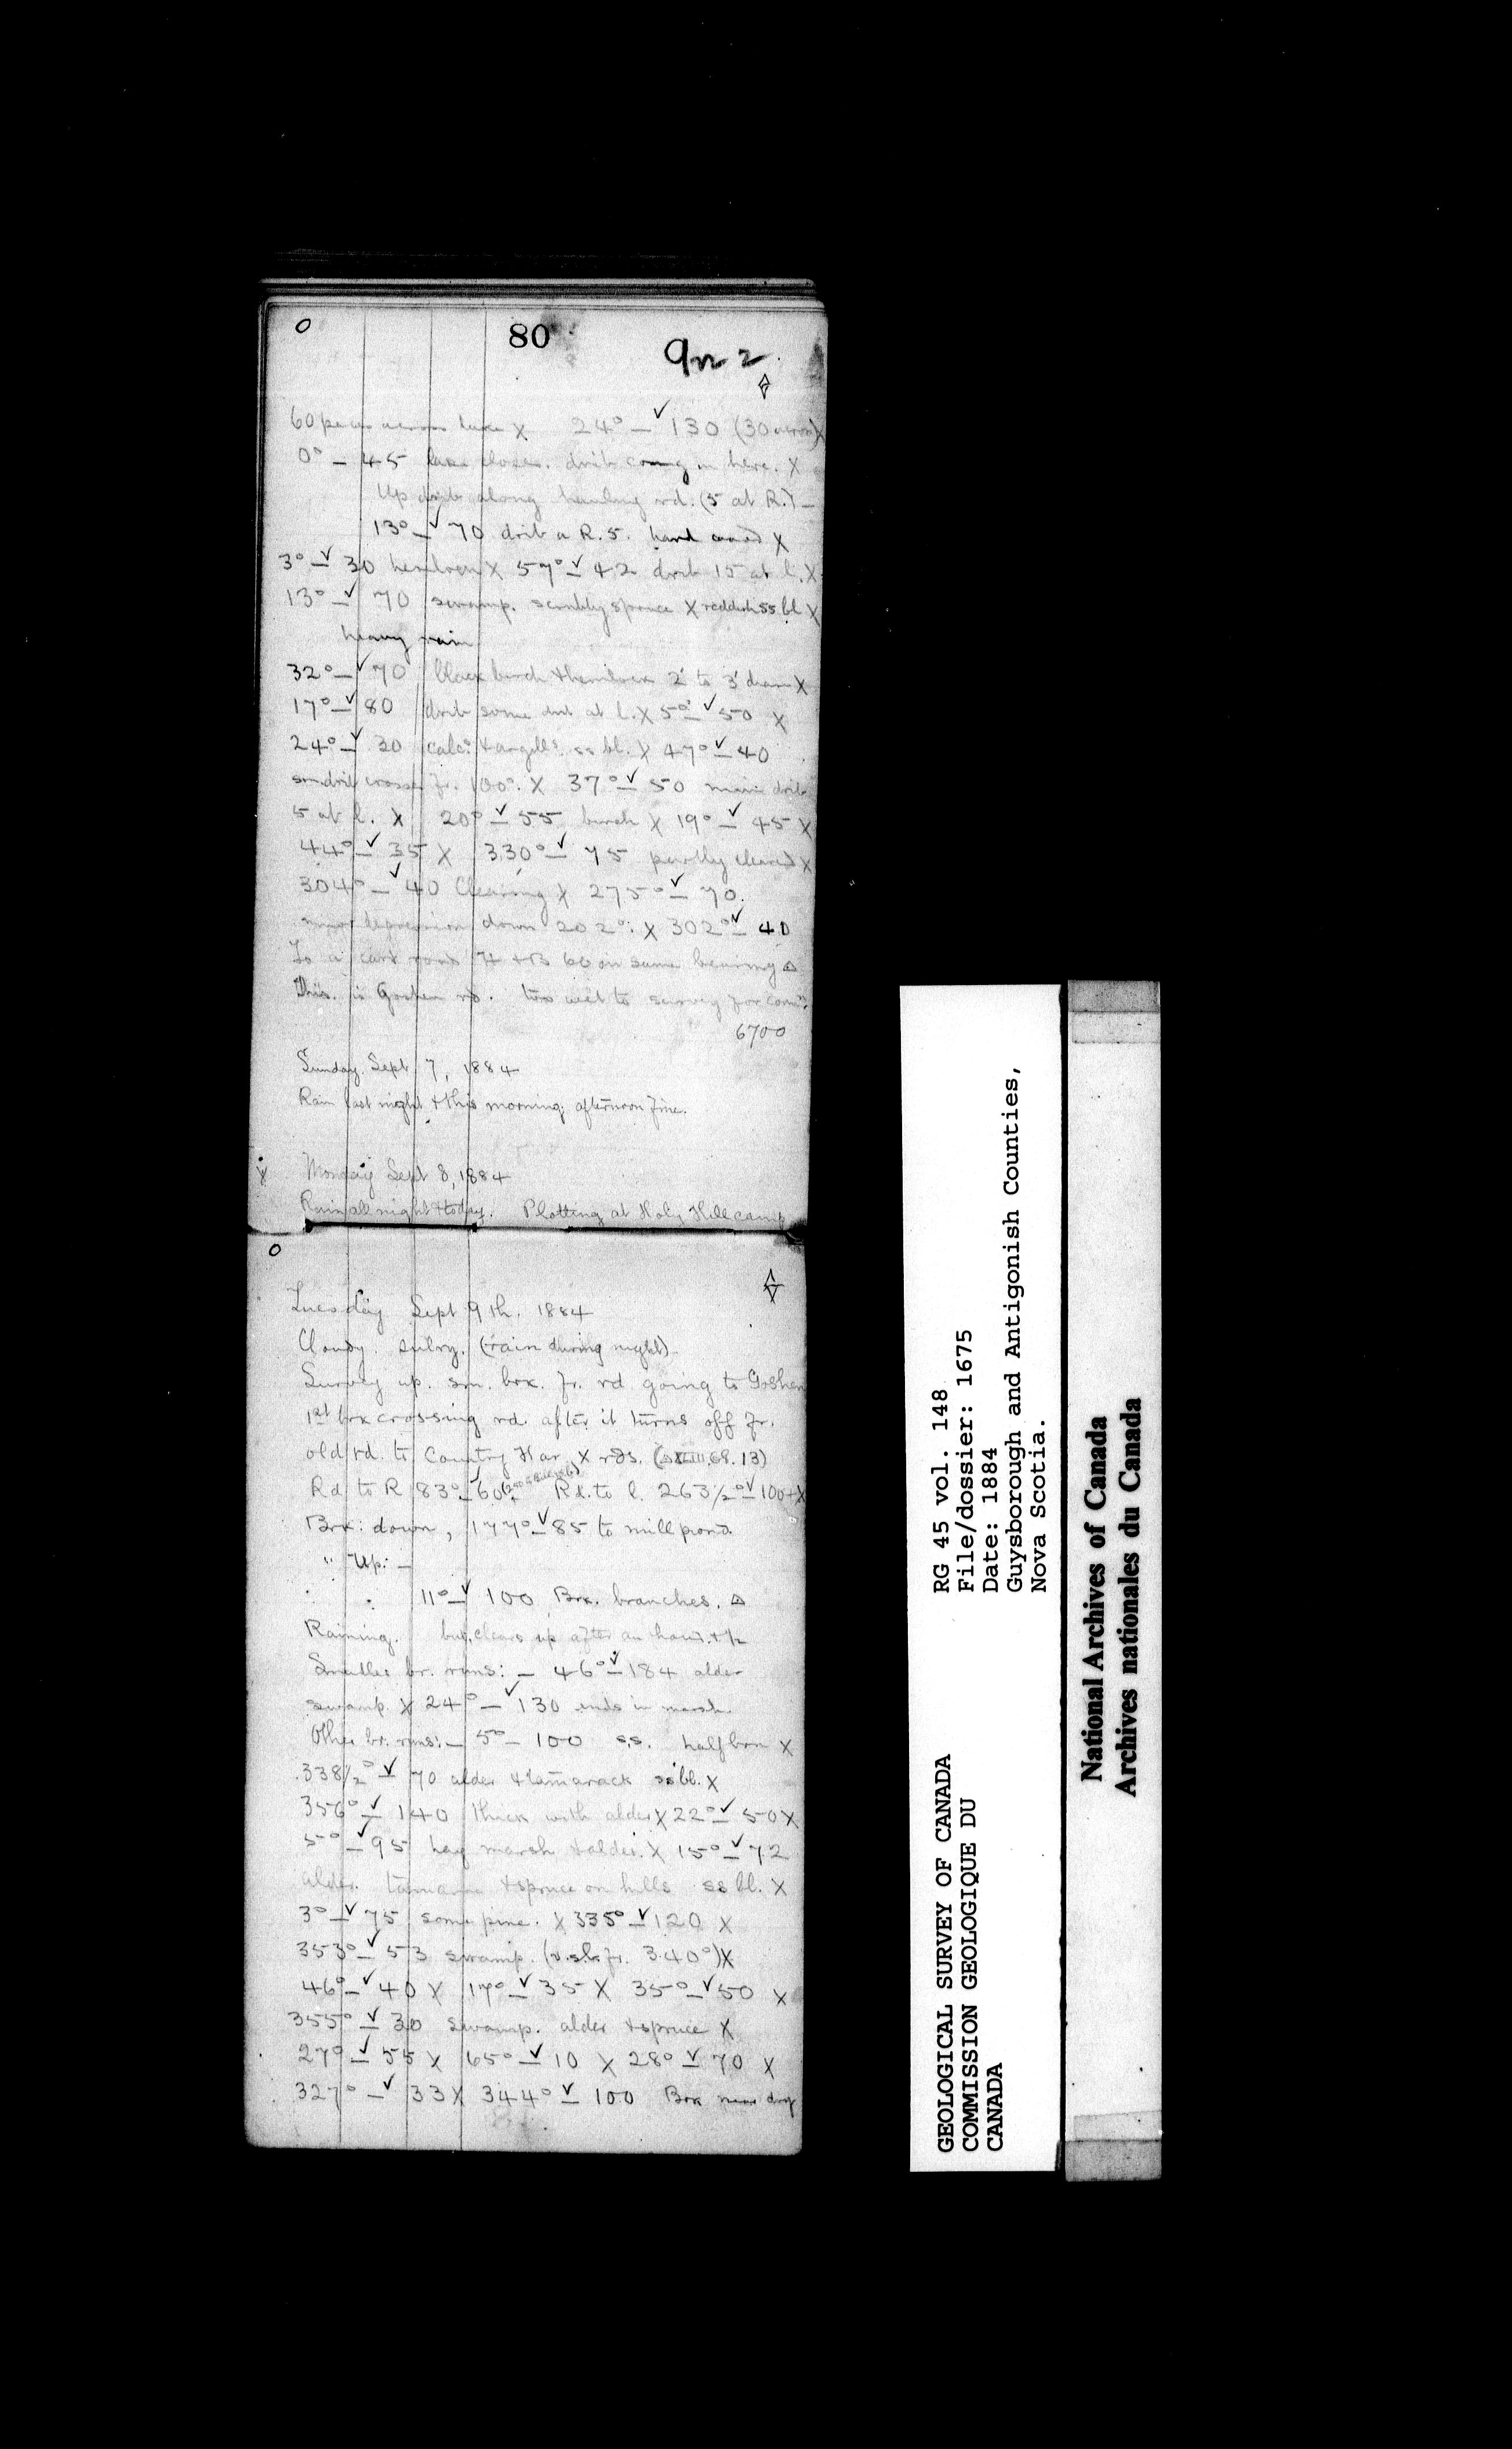 80
60 paces across lake X 24° — 130 (30 across) X
0° — 45 lake closes. drib coming in here. X
Up drib along hauling rd. (5 at R.) —
13° — 70 drib a R. 5. hard wood X
3° — 30 hemlock X 57° — 42 drib 15 at l. X
13° — 70 swamp. scrubby spruce X reddish ss bl X
heavy rain
32° — 70 black birch & hemlock 2' to 3' diam X
17° — 80 drib some dist at l. X 5° — 50 X
24° — 30 calcs. & argills. ss bl. X 47° — 40
sm drib crosses fr. 100°. X 37° — 50 main drib
5 at l. X 20° — 55 birch X 19° — 45 X
44° — 35 X 330° — 75 partly cleared X
304° — 40 Clearing X 275° — 70.
depression down 202°: X 302° — 40
To a cart road 74 60 on same bearing △
This is Goshen rd. too wet to survey for
6700
Sunday Sept 7, 1884
Rain last night & this morning; afternoon fine.
Monday Sept 8, 1884
Rain all night & today. Plotting at Holy Hill camp
Tuesday Sept 9th. 1884
Cloudy. sulry. (rain during night)
Survey up. sm. brk. fr. rd going to Goshen
1st brk crossing rd. after it turns off fr.
old rd. to Country Har X rds. (68. 13)
Rd to R 83° — 60 Rd. to l. 263½° — 100+X
Brk: down, 177° — 85 to mill pond.
" Up: —
11° — 100 Brk. branches. △
Raining. but clears up after an hour & ½
Smaller br. runs: — 46° — 184 alder
swamp. X 24° — 130 ends in marsh.
Other br. runs: — 5° — 100 s.s. X
338½° — 70 alder & tamarack ss bl. X
356° — 140 thick with alder X 22° — 50 X
5° — 95 hay marsh & alder. X 15° — 72
alder. & spruce on hills ss bl. X
3° — 75 some pine. X 335° — 120 X
353° — 53 swamp. (fr. 340°) X
46° — 40 X 17° — 35 X 35° — 50 X
355° — 30 swamp. alder & spruce X
27° — 55 X 65° — 10 X 28° — 70 X
327° — 33 X 344° — 100 Brk near dry
GEOLOGICAL SURVEY OF CANADA
COMMISSION GEOLOGIQUE DU
CANADA
RG 45 vol. 148
File/dossier: 1675
Date: 1884
Guysborough and Antigonish Counties,
Nova Scotia.
National Archives of Canada
Archives nationales du Canada